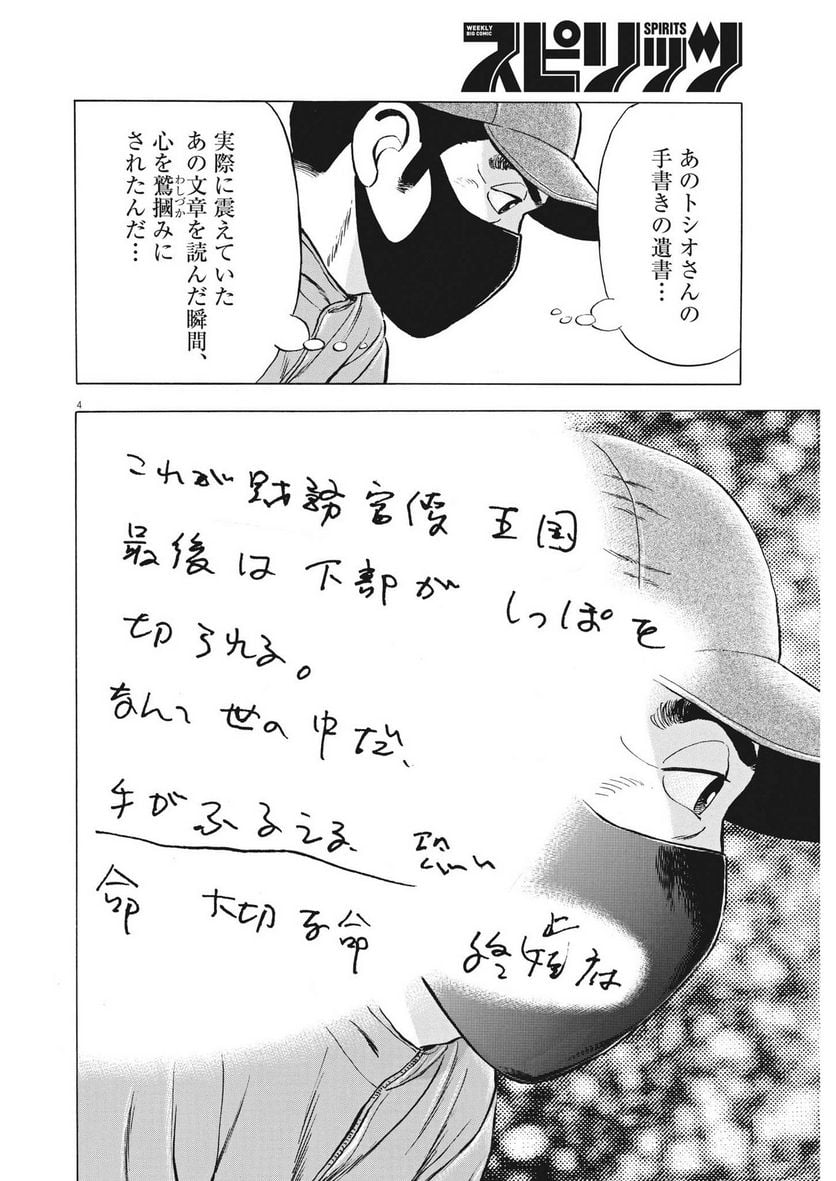 WEEKLY
BIG COMIC
スピリッツ
SPIRITS
あのトシオさんの
手書きの遺書…
実際に震えていた
あの文章を読んだ瞬間、
心を鷲摑みに
わしづか
されたんだ…
4
これが財務官僚王国
最後は下部がしっぽを
切られる。
なんて世の中だ、
手がふるえる、恐い
命 大切な命 終止府